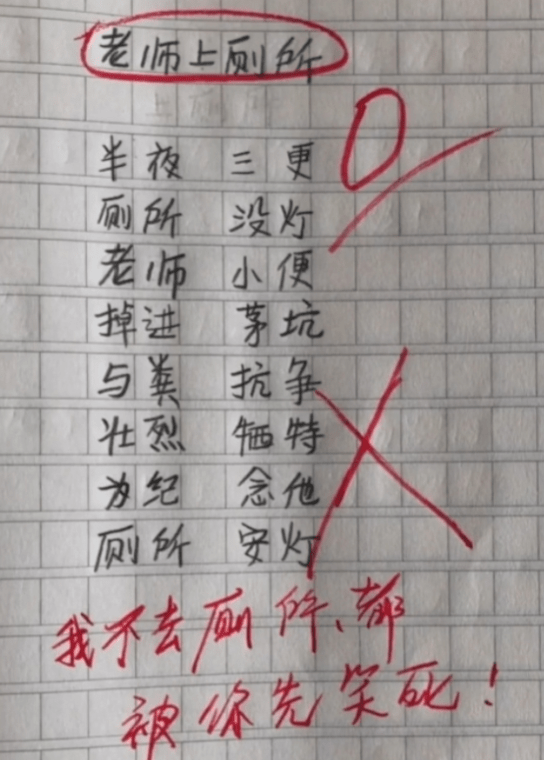 老师上厕所
0
半夜 三更
厕所 没灯
老师 小便
掉进 茅坑
与粪 抗争
壮烈 牺特
为纪 念他
厕所 安灯
我不去厕所、都
被你先笑死!